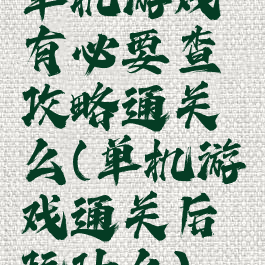 单机游戏
有必要查
攻略通关
么(单机游
戏通关后